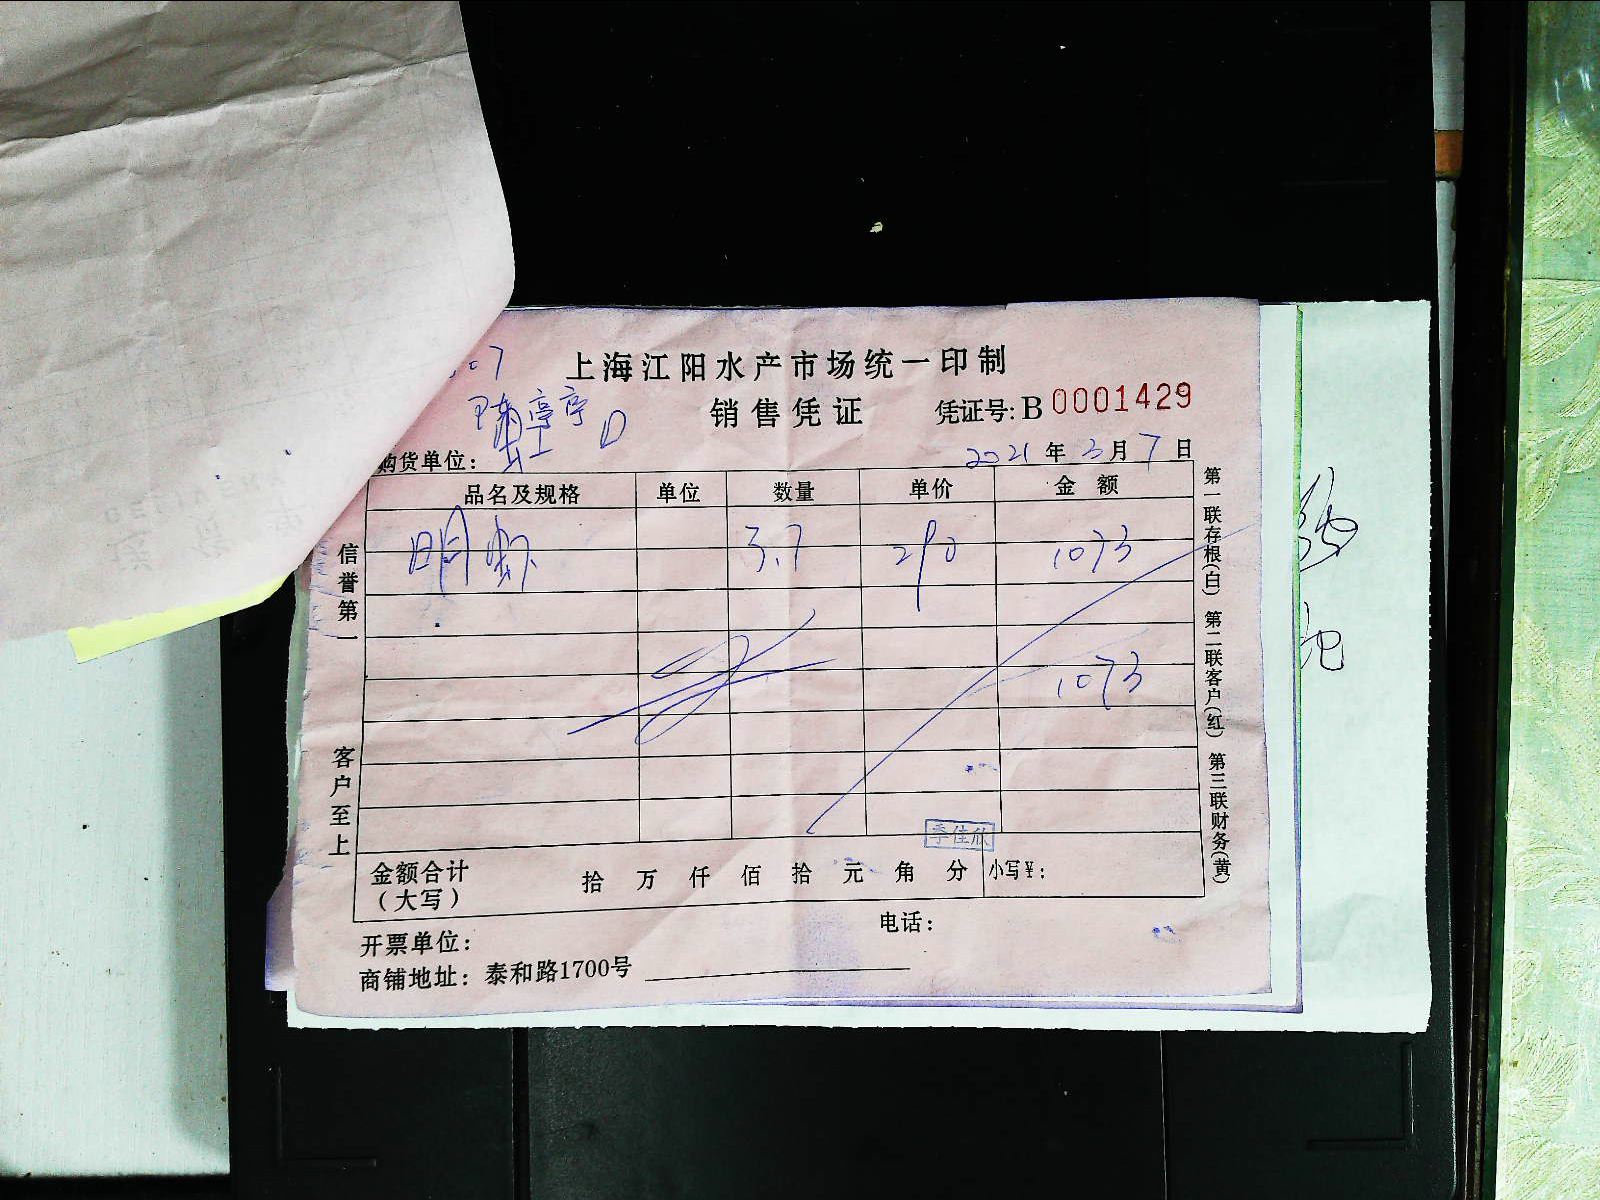 上海江阳水产市场统一印制
销售凭证 凭证号: B 0001429
陈亭亭
购货单位:
2021 年 3 月 7 日
品名及规格 单位 数量 单价 金额
明虾 3.7 290 1073
1073
信誉第一 客户至上
第一联存根(白) 第二联客户(红) 第三联财务(黄)
季佳欣
金额合计 拾 万 仟 佰 拾 元 角 分 小写¥:
(大写)
电话:
开票单位:
商铺地址: 泰和路1700号